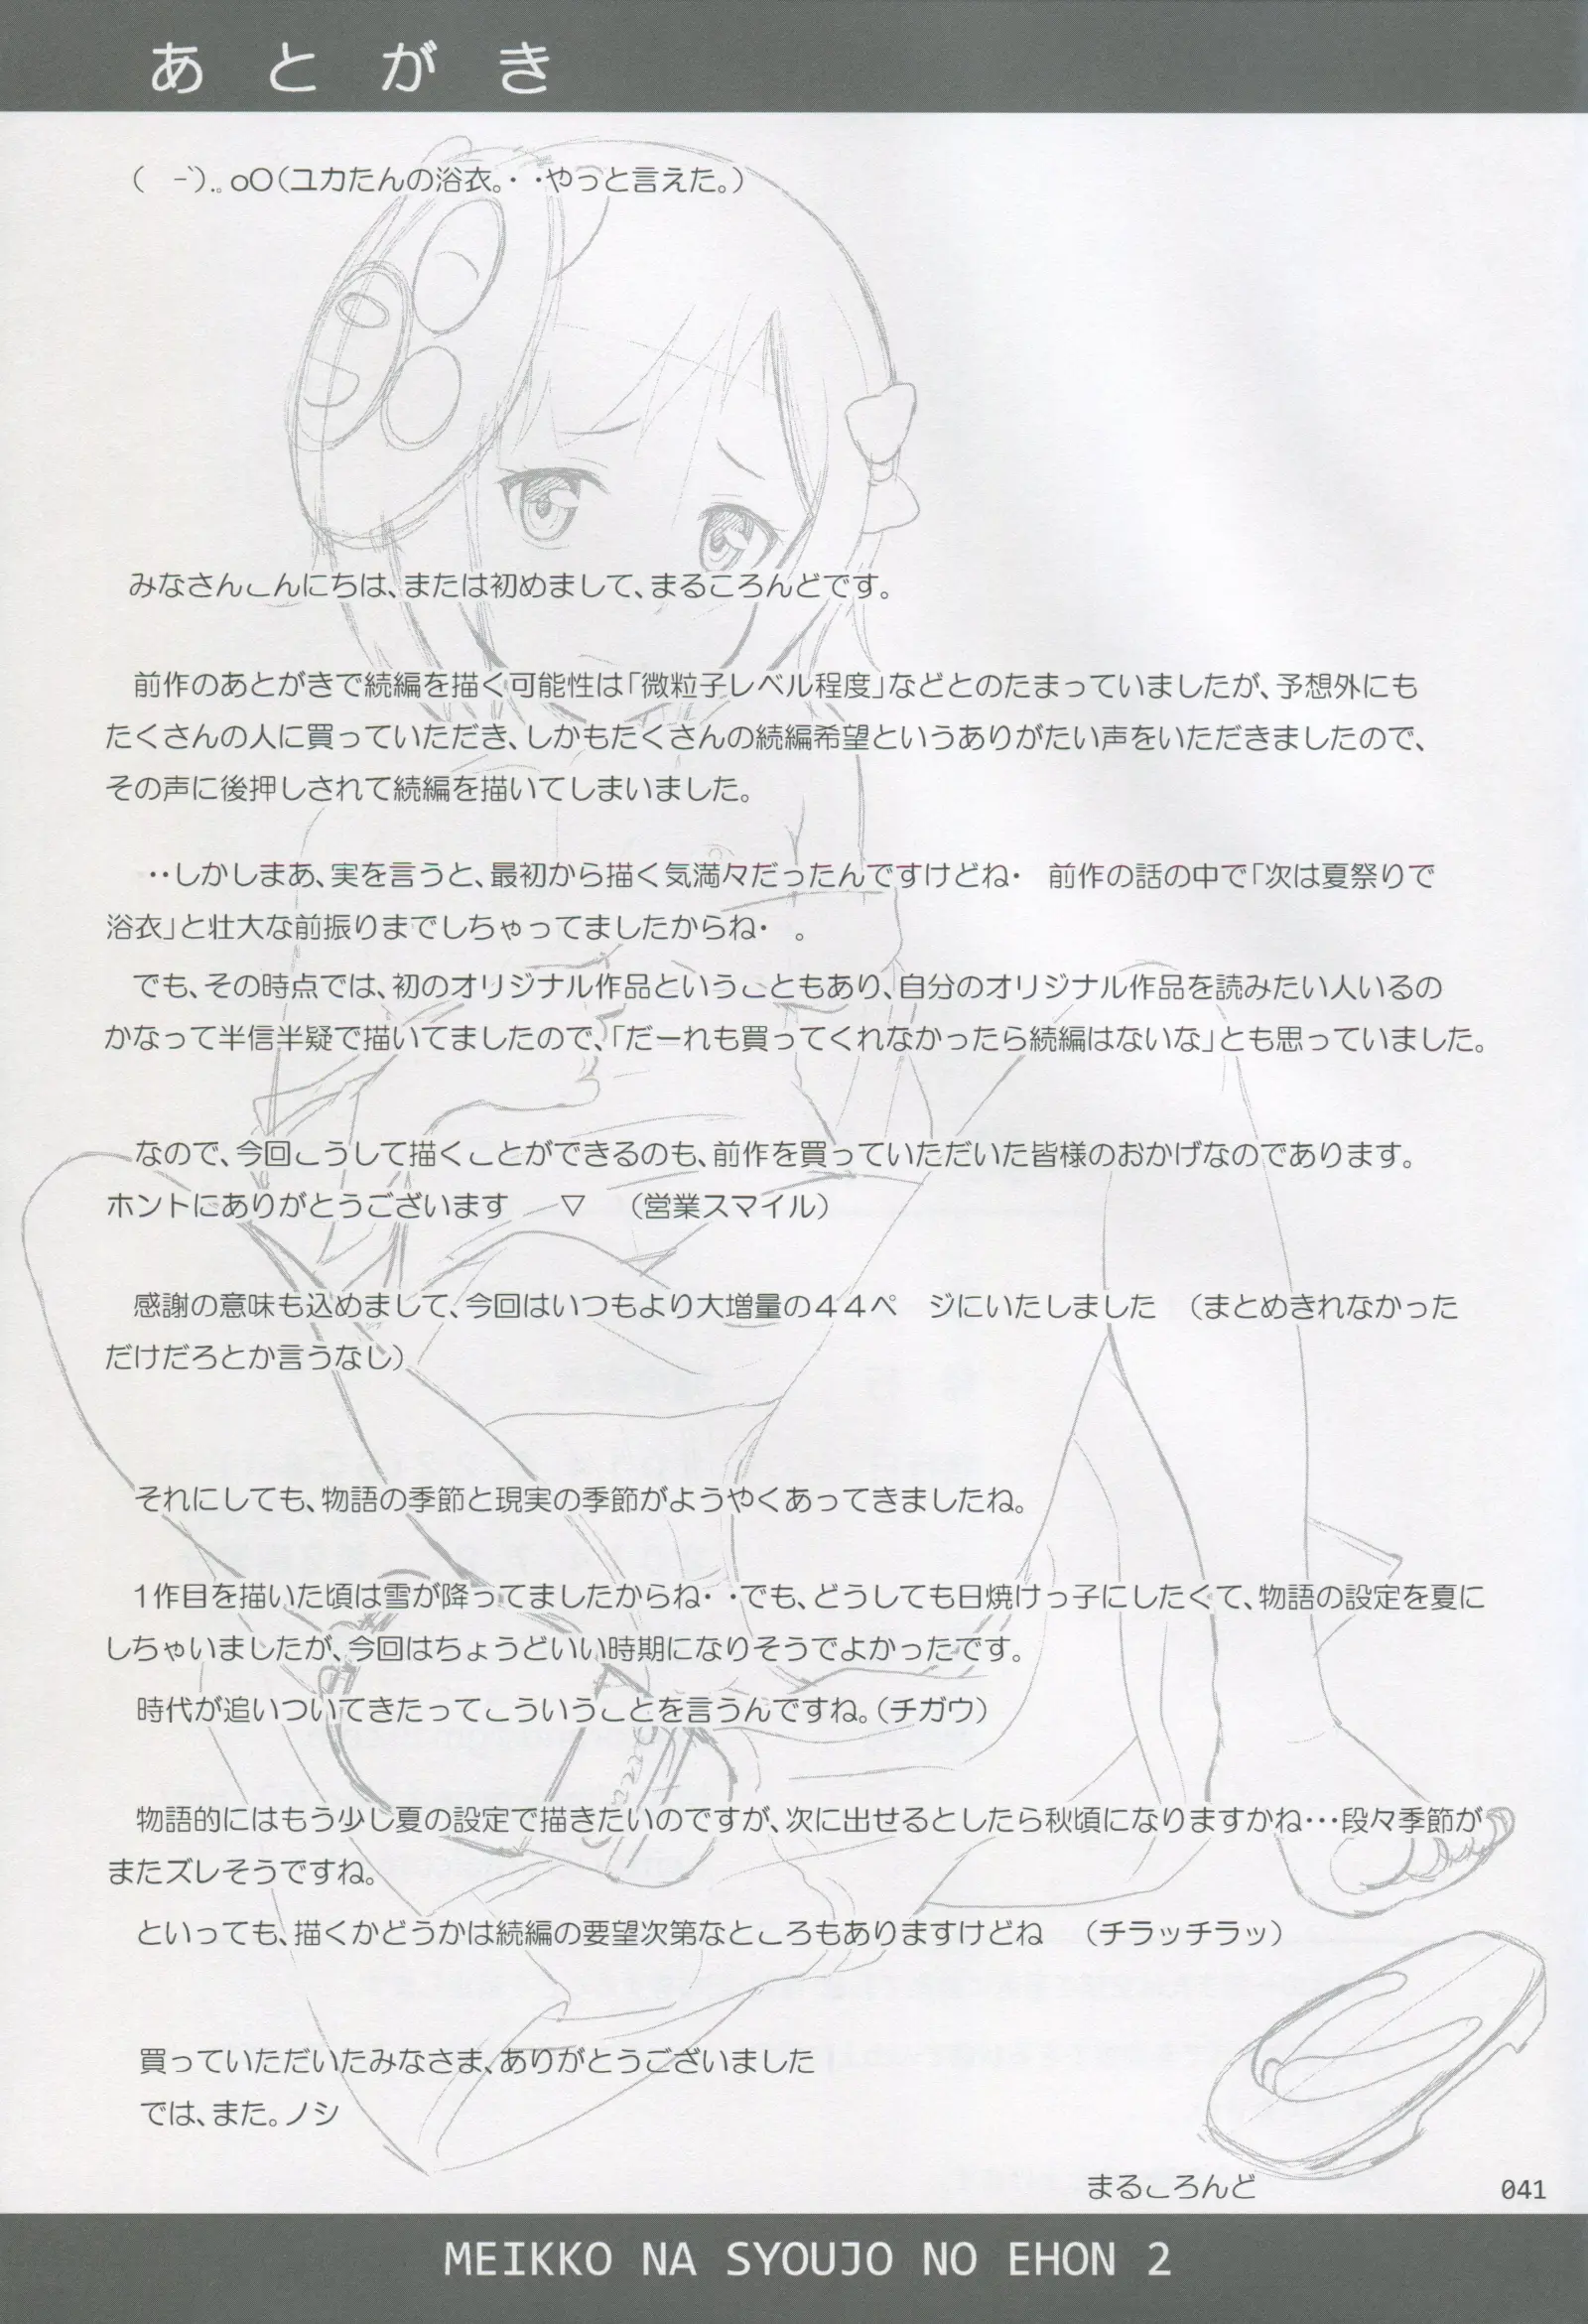 あとがき
（　-`）.。oO（ユカたんの浴衣。・・やっと言えた。）
みなさんこんにちは、または初めまして、まるころんどです。
前作のあとがきで続編を描く可能性は「微粒子レベル程度」などとのたまっていましたが、予想外にも
たくさんの人に買っていただき、しかもたくさんの続編希望というありがたい声をいただきましたので、
その声に後押しされて続編を描いてしまいました。
・・しかしまあ、実を言うと、最初から描く気満々だったんですけどね・　前作の話の中で「次は夏祭りで
浴衣」と壮大な前振りまでしちゃってましたからね・　。
でも、その時点では、初のオリジナル作品ということもあり、自分のオリジナル作品を読みたい人いるの
かなって半信半疑で描いてましたので、「だーれも買ってくれなかったら続編はないな」とも思っていました。
なので、今回こうして描くことができるのも、前作を買っていただいた皆様のおかげなのであります。
ホントにありがとうございます　―▽　（営業スマイル）
感謝の意味も込めまして、今回はいつもより大増量の４４ペ　ジにいたしました　（まとめきれなかった
だけだろとか言うなし）
それにしても、物語の季節と現実の季節がようやくあってきましたね。
１作目を描いた頃は雪が降ってましたからね・・でも、どうしても日焼けっ子にしたくて、物語の設定を夏に
しちゃいましたが、今回はちょうどいい時期になりそうでよかったです。
時代が追いついてきたってこういうことを言うんですね。（チガウ）
物語的にはもう少し夏の設定で描きたいのですが、次に出せるとしたら秋頃になりますかね・・・段々季節が
またズレそうですね。
といっても、描くかどうかは続編の要望次第なところもありますけどね　（チラッチラッ）
買っていただいたみなさま、ありがとうございました
では、また。ノシ
まるころんど
041
MEIKKO NA SYOUJO NO EHON 2